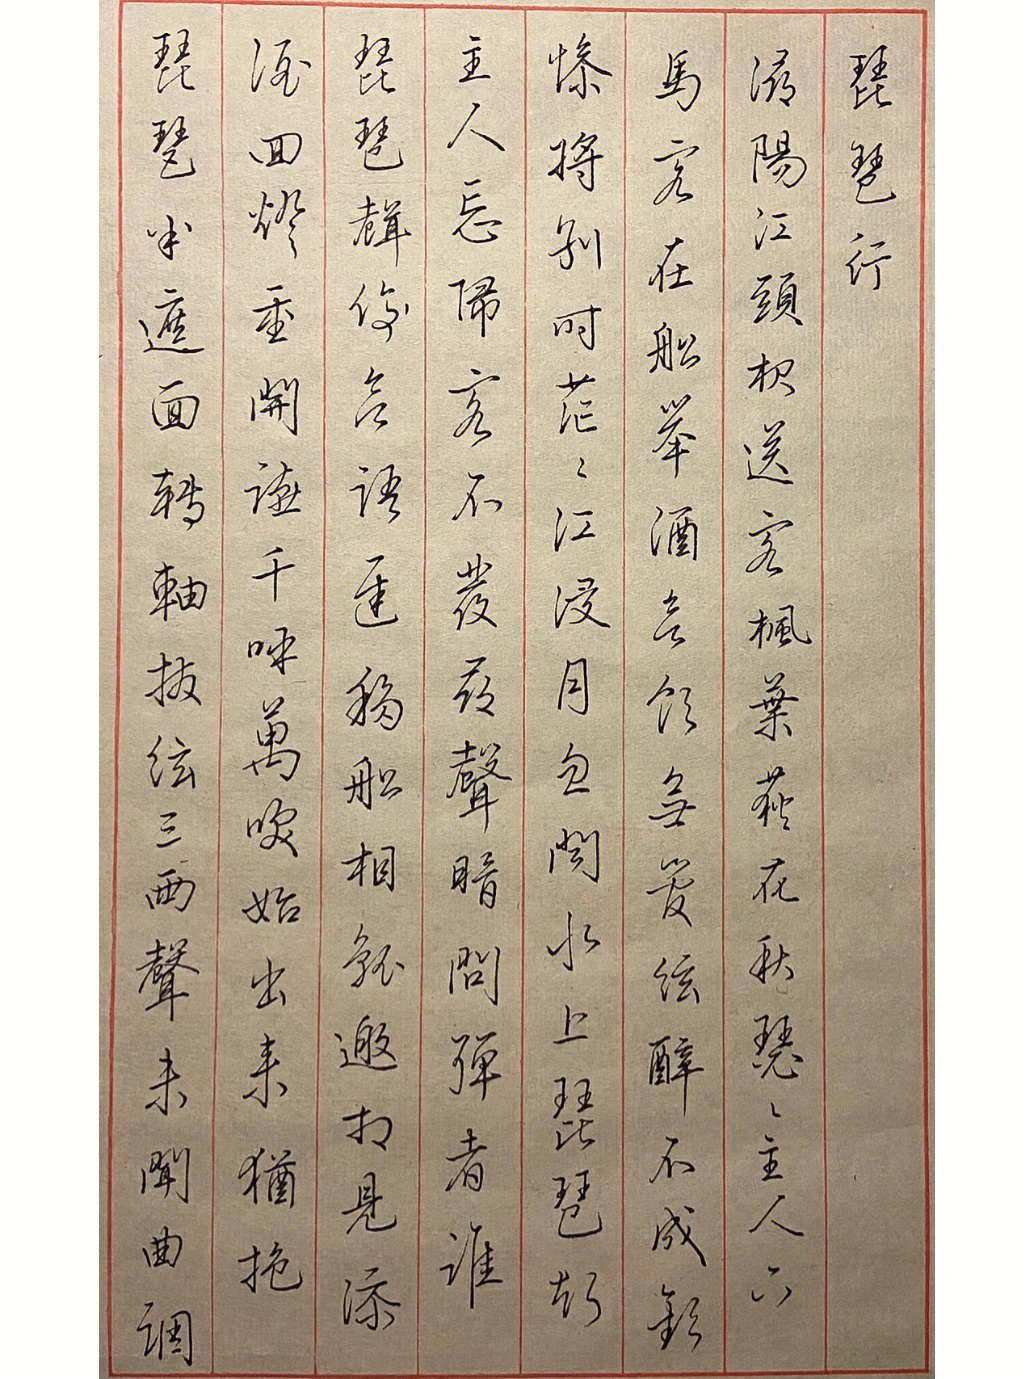 琵琶行
潯陽江頭夜送客楓葉荻花秋瑟〻主人下
馬客在船舉酒欲飲無管絃醉不成歡
慘將別時茫〻江浸月忽聞水上琵琶聲
主人忘歸客不發尋聲暗問彈者誰
琵琶聲停欲語遲移船相就邀相見添
酒回燈重開讌千呼萬喚始出來猶抱
琵琶半遮面轉軸撥絃三兩聲未聞曲調